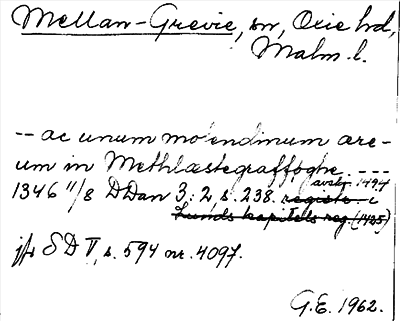 Mellan-Grevie, sn, Oxie hd,
Malm. l.
-- ac unum molendinum are-
um in Methlæstegrafføghe. ---
avskr. 1494
1346 11/8 DDan 3:2, s. 238. registr. i
Lunds kapitels reg. (1425)
jfr SD V, s. 594 nr. 4097.
G.E. 1962.